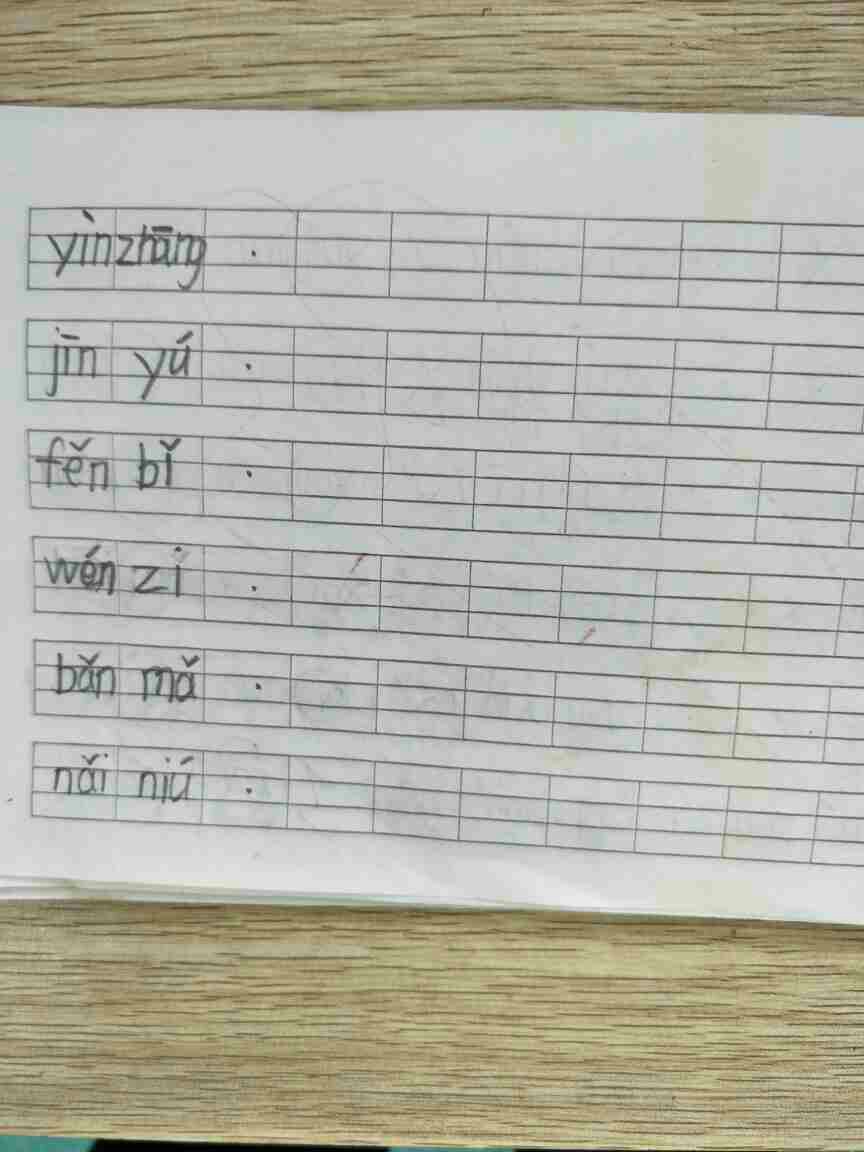 yìn zhāng .
jīn yú .
fěn bǐ .
wén zi .
bǎn mǎ .
nǎi niú .